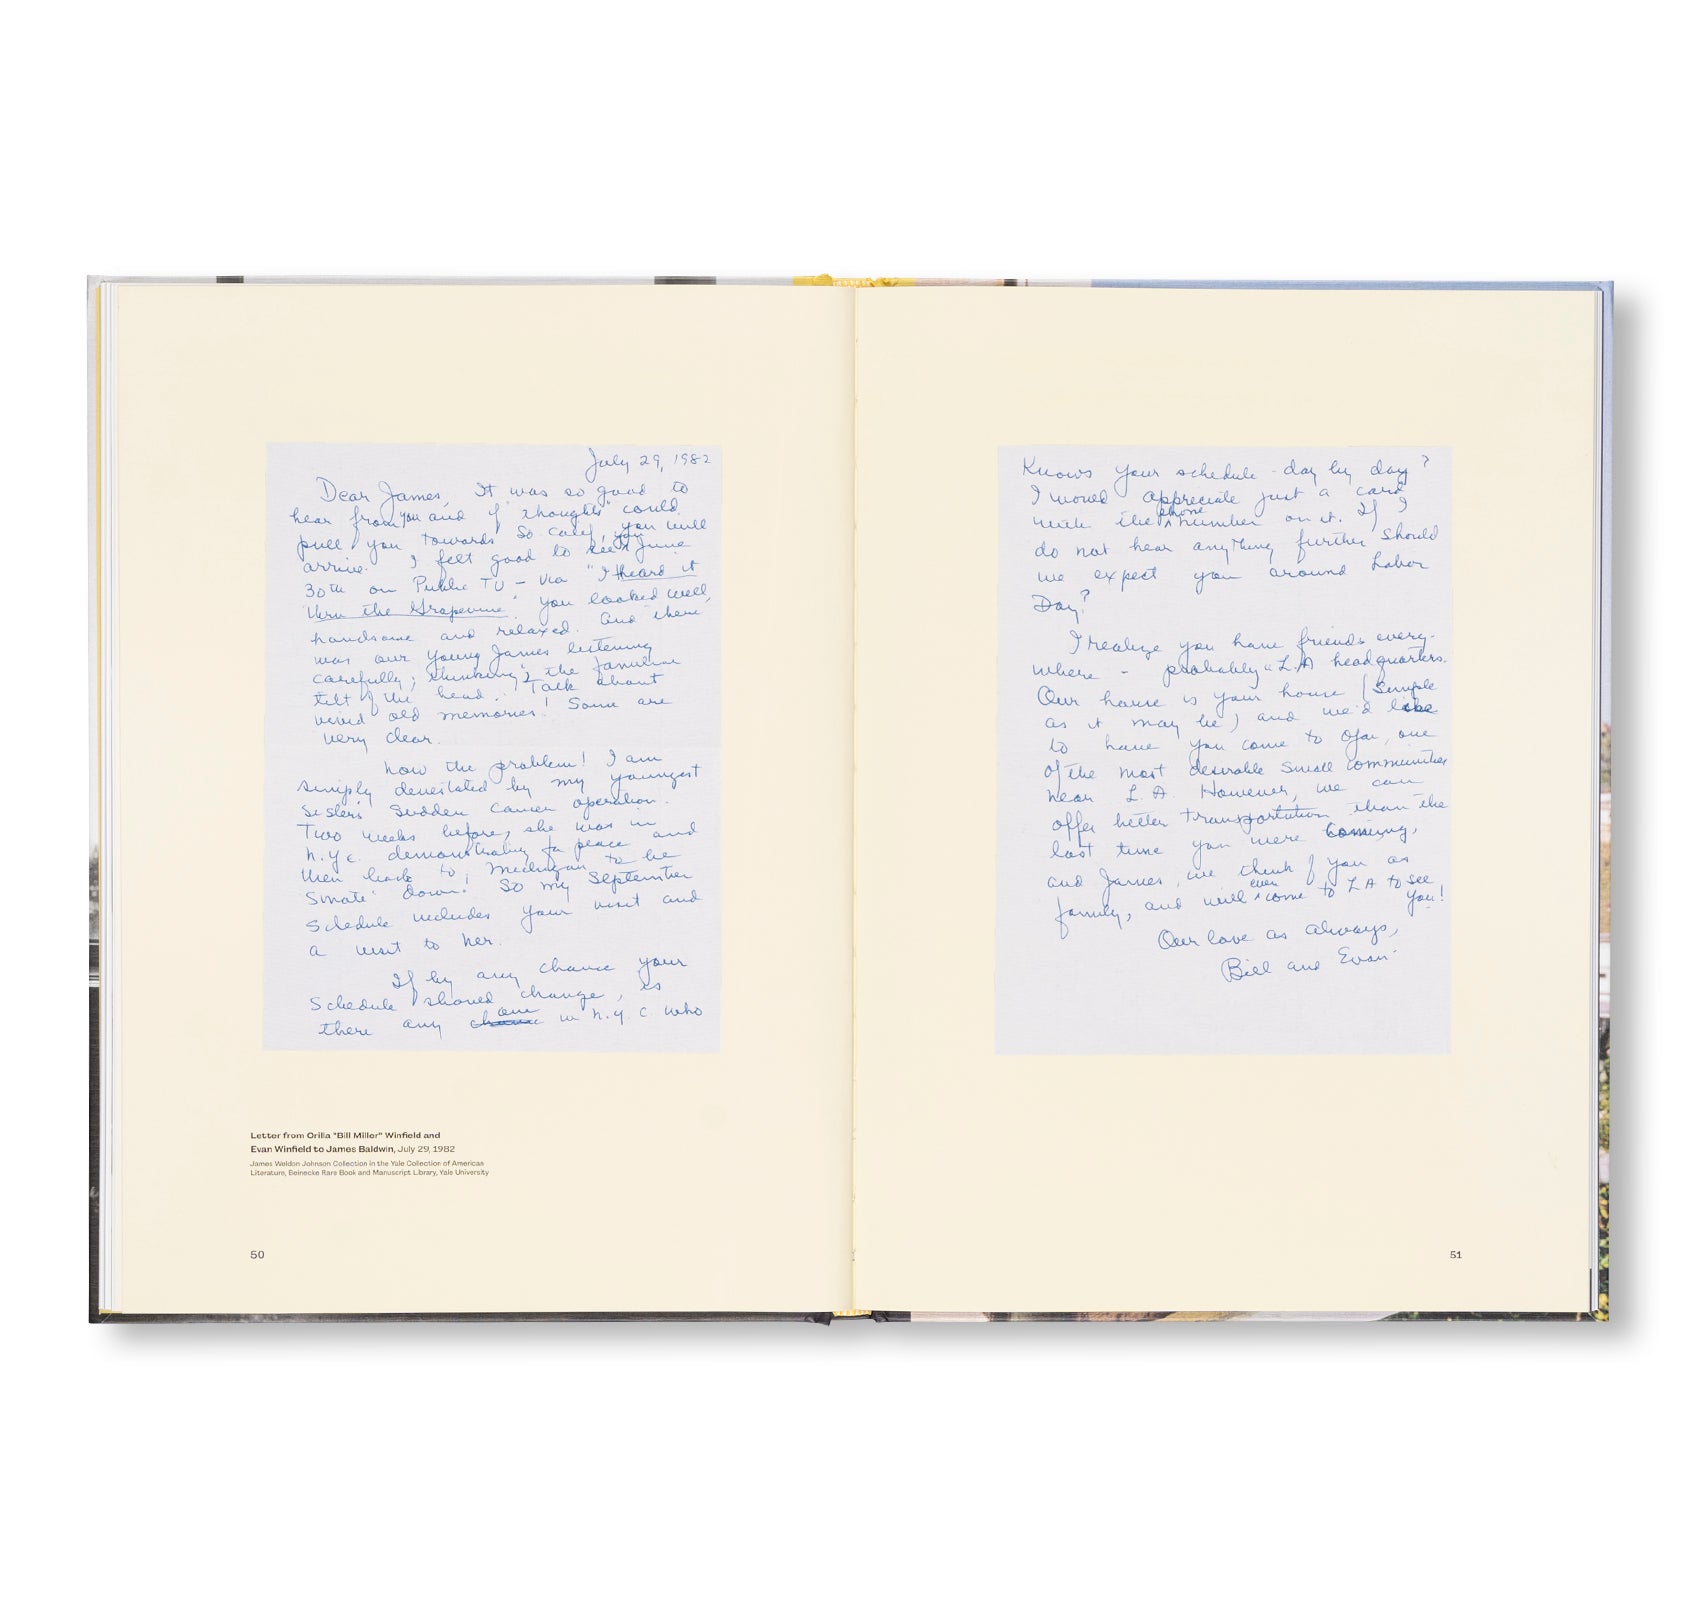 July 29, 1982
Dear James, It was so good to
hear from you and if "thoughts" could
pull you towards So. Calif, you will
arrive. I felt good to see you June
30th on Public TV - via "I heard it
thru the Grapevine". You looked well,
handsome and relaxed. And there
was our young James listening
carefully; "thinking" the familiar
tilt of the head. Talk about
vivid old memories! Some are
very clear.
Now the problem! I am
simply devestated by my youngest
sister's sudden cancer operation.
Two weeks before, she was in
N.Y.C. demonstrating for peace and
then back to Michigan to be
down! So my September
schedule includes your visit and
a visit to her.
If by any chance your
schedule should change, is
there any one in N.Y.C. who
Knows your schedule - day by day?
I would appreciate just a card
with the phone number on it. If I
do not hear anything further should
we expect you around Labor
Day?
I realize you have friends every-
where - probably "L.A headquarters.
Our house is your house (Simple
as it may be) and we'd like
to have you come to Ojai, one
of the most desirable small communities
near L.A. However, we can
offer better transportation than the
last time you were coming,
and James, we think of you as
family, and will even come to LA to see
you!
Our love as always,
Bill and Evan
Letter from Orilla "Bill Miller" Winfield and
Evan Winfield to James Baldwin, July 29, 1982
James Weldon Johnson Collection in the Yale Collection of American
Literature, Beinecke Rare Book and Manuscript Library, Yale University
50
51